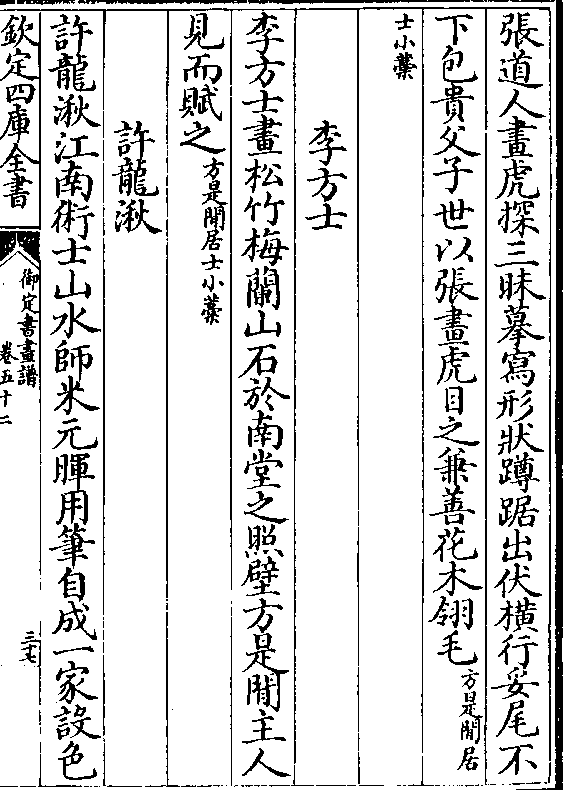 張道人畫虎探三昧摹寫形狀蹲踞出伏橫行妥尾不
下包貴父子世以張畫虎目之兼善花木翎毛方是閒居
士小藁
李方士
李方士畫松竹梅蘭山石於南堂之照壁方是閒主人
見而賦之方是閒居士小藁
許龍湫
許龍湫江南術士山水師米元暉用筆自成一家設色
欽定四庫全書
御定書畫譜
卷五十二
三十七